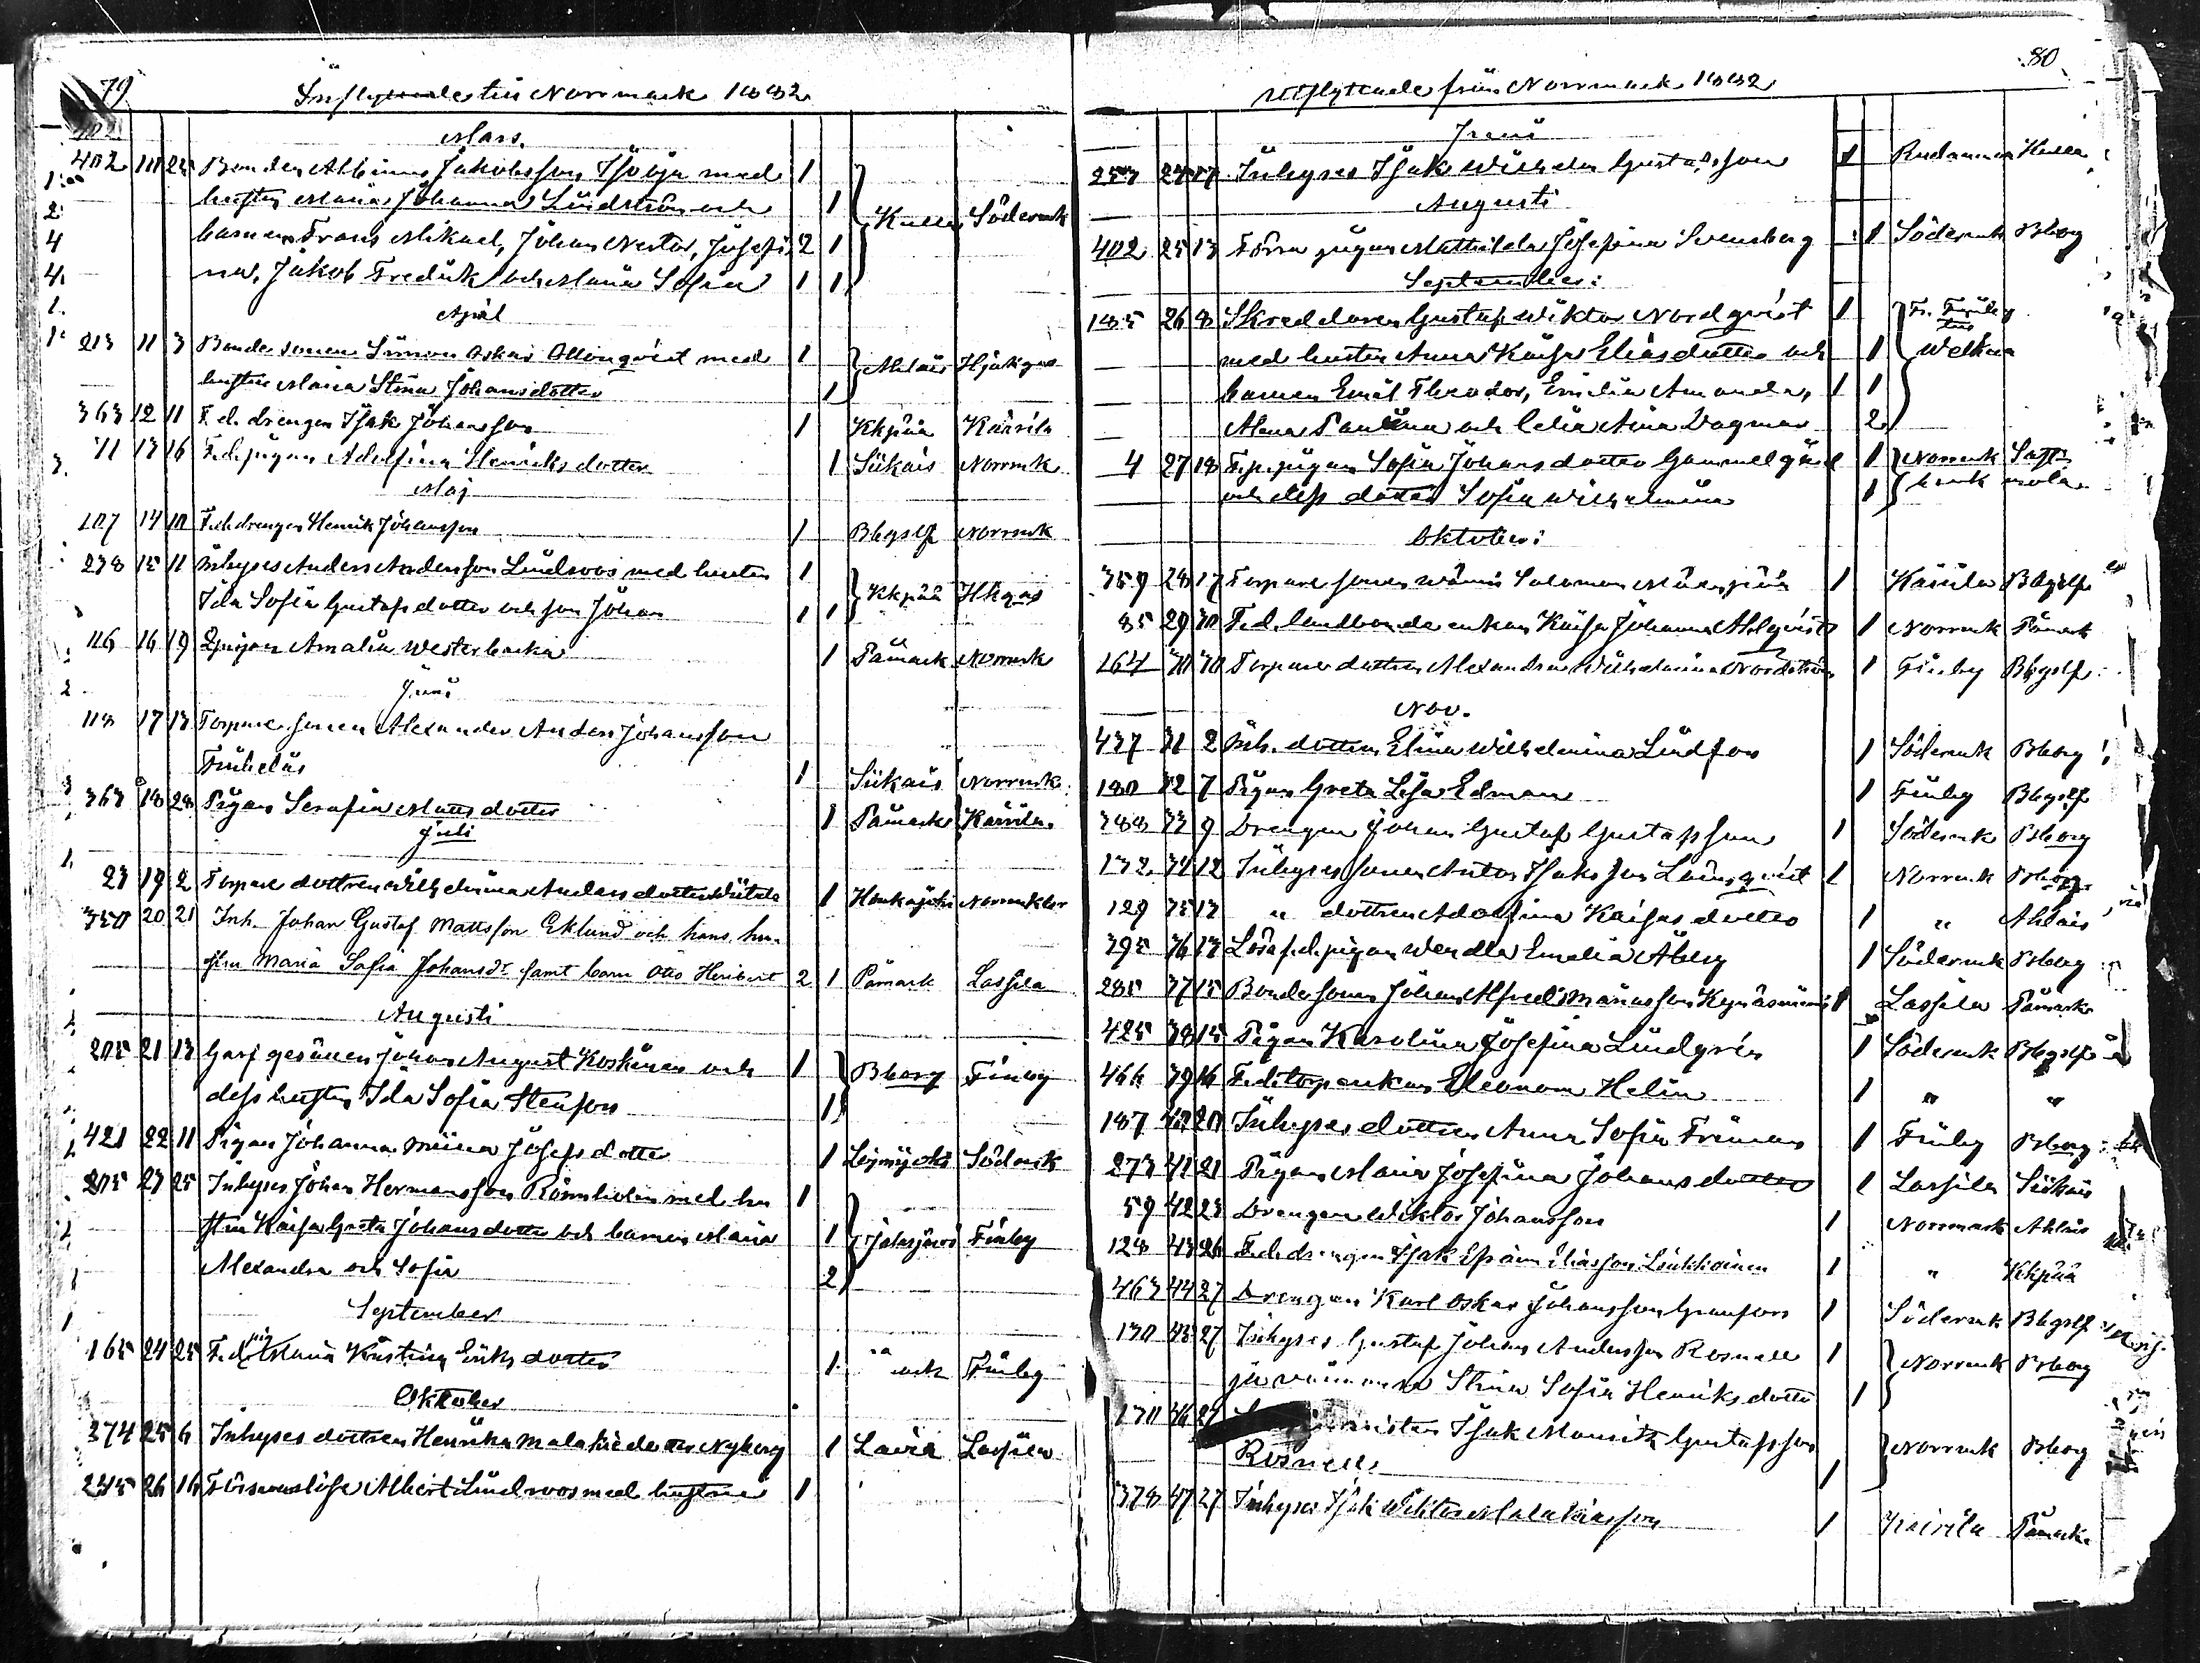 79
Inflyttade till Norrmark 1882
Mars.
402 10 25 Bonden Albinus Jakobsson Isooja med 1
hustru Maria Johanna Lindström och 1 Kullaa Södermk
barnen Frans Mikael, Johan Nestor, Josefi- 2 1
na, Jakob Fredrik och Maria Sofia 1 1
April
213 11 3 Bondesonen Simon Oskar Ollonqvist med 1 Ahlais Hjakgas
hustru Maria Stina Johansdotter 1
363 12 11 F.d. drengen Isak Johansson 1 Kkpää Kairila
71 13 16 F.d. pigan Adolfina Henriksdotter 1 Siikais Norrmk
Maj
107 14 10 F.d. drengen Henrik Johansson 1 Bbgslf Norrmk
278 15 11 Inhyses Anders Andersson Lindroos med hustru 1 Kkpää Hkgas
Ida Sofia Gustafsdotter och son Johan 1 1
116 16 19 Pigan Amalia Westerbacka 1 Påmark Norrmk
Juni
118 17 13 Torpare sonen Alexander Anders Johansson
1 Siikais Norrmk
363 18 28 Pigan Serafia Mattsdotter 1 Påmark Kairila
Juli
23 19 2 Torpare dottren Wilhelmina Andersdotter 1 Honkajoki Norrmk
350 20 21 Inh. Johan Gustaf Mattsson Eklund och hans hu-
stru Maria Sofia Johansdr samt barn Otto Heribert 2 1 Påmark Lassila
Augusti
205 21 13 Garfgesällen Johan August Koskinen och 1 Bborg Finby
dess hustru Ida Sofia Stenfors 1
421 22 11 Pigan Johanna Miina Josefsdotter 1 Södmk
205 23 25 Inhyses Johan Hermansson Rönnholm med hu 1
stru Kaisa Greta Johansdotter och barnen Maria 1 Finby
Alexandra och Sofia 2
September
165 24 25 F.d. pig Maria Kristina Eriksdotter 1 Finby
Oktober
374 25 6 Inhyses dottren Henrika Malakiedotter Nyberg 1 Lavia Lassila
245 26 16 Försvarslöse Albert Lindroos med hustru 1
80
Utflyttade från Norrmark 1882
Juni
253 24 17 Inhyses Isak Wilhelm Gustafsson 1 Kullaa
Augusti
402 25 13 Förra pigan Mathilda Josefina Svensberg 1 Södermk Bborg
September:
185 26 8 Skreddaren Gustaf Wiktor Nordqvist 1 Fr. Finby
med hustru Anna Kaisa Eliasdotter och 1 till
barnen Emil Theodor, Emilia Amanda, 1 1
Alma Paulina och Celia Aina Dagmar 2
4 27 18 F.p. pigan Sofia Johansdotter Gammelgård 1 Norrmk
och dess dotter Sofia Wilhelmina 1 bruk
Oktober:
359 28 17 Torpare sonen Salomon 1 Kairila Bbgslf
85 29 30 F.d. landbonde enkan Kaisa Johanna Ahlqvist 1 Norrmk Påmark
164 30 30 Torpare dottren Alexandra Wilhelmina Nordström 1 Finby Bbgslf
Nov.
437 31 2 Inh. dottren Elina Wilhelmina Lindfors 1 Södermk Bborg
180 32 7 Pigan Greta Lisa Edman 1 Finby Bbgslf
388 33 9 Drengen Johan Gustaf Gustafsson 1 Södermk Bborg
132 34 12 Inhyses sonen Anton Isaksson Löngqvist 1 Norrmk Bborg
129 35 13 " dottren Adolfina Kaisasdotter 1 " Ahlais
395 36 13 Lösa f.d. pigan Wendla Emelia Åberg 1 Södermk Bborg
285 37 15 Bondesonen Johan Alfred Manasson Kynäsniemi 1 Lassila Påmark
425 38 15 Pigan Karolina Josefina Lindgrén 1 Södermk Bbgslf
466 39 16 F.d. torp. enkan Eleonora Helin 1 " "
187 40 20 Inhyses dottren Anna Sofia Friman 1 Finby Bborg
273 41 21 Pigan Maria Josefina Johansdotter 1 Lassila Siikais
59 42 23 Drengen Wiktor Johansson 1 Norrmark Ahlais
128 43 26 F.d. drengen Isak Efraim Eliasson Leukkainen 1 " Kkpää
463 44 27 Drengen Karl Oskar Johansson Granfors 1 Södermk Bbgslf
130 45 27 Inhyses Gustaf Johan Andersson Rosnell 1 Norrmk Bborg
Stina Sofia Henriksdotter 1
130 46 27 Isak Mauritz Gustafsson Norrmk Bborg
Rosnell 1
378 47 27 Inhyses Isak Wiktor Malakiasson 1 Kairila Påmark